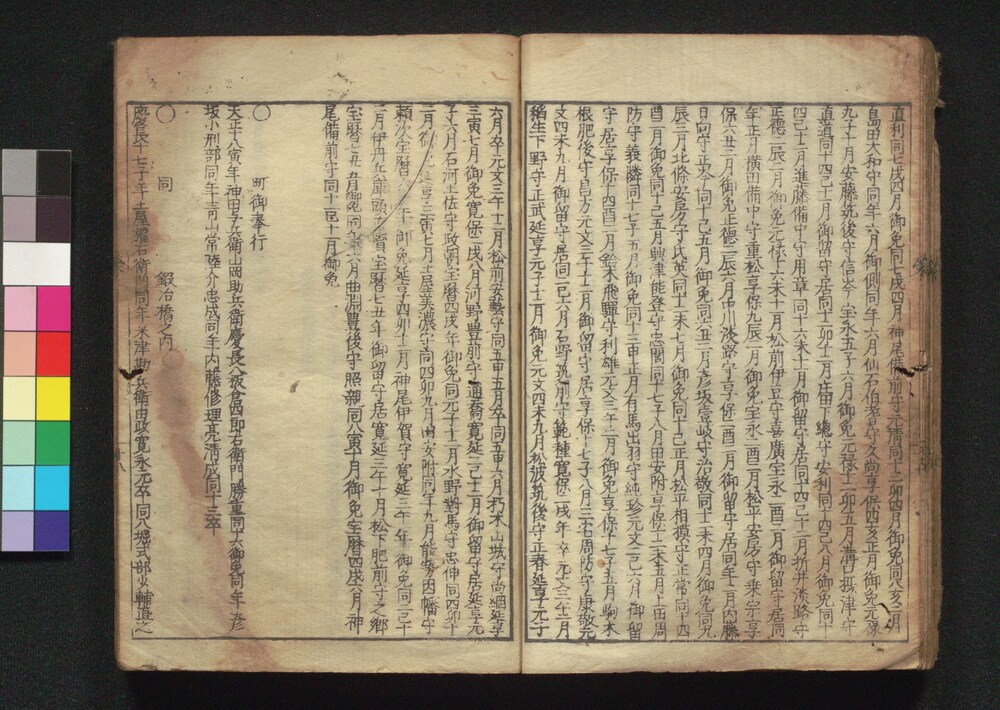 直利同七戌四月御免同七戌四月神尾備前守元清同十二卯四月御免同八亥二月
島田大和守同年六月御側同年六月仙石伯耆守久尚享保四亥正月御免元禄
九子十月安藤筑後守信 宝永五子六月御免元禄十二卯五月溝口摂津守
直道同十四巳十二月御留守居同十二卯十二月庄田下総守安利同十四巳八月御免同十
四巳十二月進藤備中守用章同十六未十一月御留守居同十四巳十二月折井淡路守
正徳二辰二月御免元禄十六未十一月松前伊豆守嘉廣宝永二酉二月御留守居同
年正月横田備中守重松享保九辰二月御免宝永二酉二月松平安房守乗宗享
保六丑二月御免正徳二辰六月中川淡路守享保二酉二月御留守居同年二月内藤
日向守正 同十巳五月御免同六丑二月彦坂壱岐守治敬同十一未四月御免同九
辰二月北條安房守氏英同十二未七月御免同十巳正月松平相模守正常同十四
酉二月御免同十巳五月興津能登守忠閭同十七子八月田安附享保十二未五月 周
防守義隣同十七子五月御免同十三申正月有馬出羽守純珍元文二巳六月御留
守居享保十四酉二月鈴木飛騨守利雄元文三午二月御免享保十七子五月駒木
根肥後守昌方元文三午十二月御留守居享保十七子八月三宅周防守康敬元
文四未九月御留守居同二巳六月石野筑前守範種寛保二戌年卒元文三午二月
稲生下野守正武延享元子十二月御免元文四未九月松波筑後守正春延享元子
六月卒元文三午十二月松前安藝守同五申五月卒同五申六月朽木山城守尚綱延享
三寅七月御免寛保二戌八月河野豊前守通喬寛延二巳十二月御留守居延享元
子六月石河土佐守政朝宝暦四戌年御免同元子十二月水野對馬守忠伸同四卯年
二月 延享三寅七月土屋美濃守同四卯九月田安附同年九月能勢因幡守
頼次宝暦 年御免延享四卯十二月神尾伊賀守寛延三午年御免同三午
二月伊丹兵庫頭 賢宝暦七丑年御留守居寛延三午十月松下肥前守之郷
宝暦七丑五月御免同 六月曲淵豊後守照親同八寅十月御免宝暦四戌六月神
尾備前守同十 十一月御免
〇　町御奉行
天正十八寅年神田与兵衛山岡助兵衛慶長八板倉四郎右衛門勝重同十六御免同年彦
坂小刑部同年青山常陸介忠成同年内藤修理亮清成同十三卒
〇　同　鍛冶橋之内
慶長十七子年土屋權右衛門同年米津勘兵衛由政寛永元卒同八堀式部少輔直之
十八